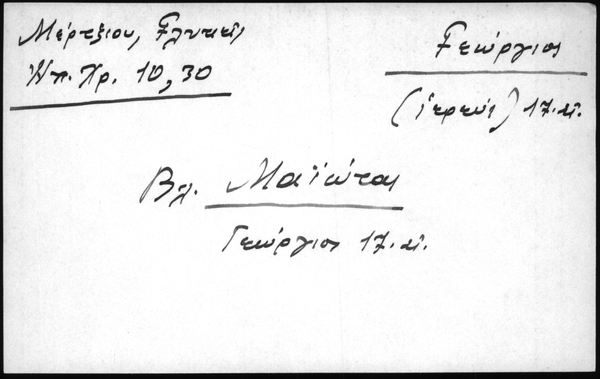 Μέρτζιου, Γλυκεῖς
Ἠπ. Χρ. 10, 30
Γεώργιος
(ἱερεύς) 17. αἰ.
Βλ. Μαϊώτας
Γεώργιος 17. αἰ.